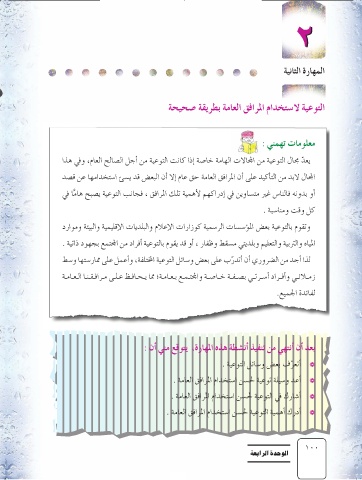 ٢
المهارة الثانية
التوعية لاستخدام المرافق العامة بطريقة صحيحة
معلومات تهمني :
يعدّ مجال التوعية من المجالات الهامة خاصة إذا كانت التوعية من أجل الصالح العام، وفي هذا
المجال لابد من التأكيد على أن المرافق العامة حق عام إلا أن البعض قد يسئ استخدامها عن قصد
أو بدونه فالناس غير متساوين في إدراكهم لأهمية تلك المرافق ، فجانب التوعية يصبح هامًا في
كل وقت ومناسبة .
وتقوم بالتوعية بعض المؤسسات الرسمية كوزارات الإعلام والبلديات الإقليمية والبيئة وموارد
المياه والتربية والتعليم وبلديتي مسقط وظفار ، أو قد يقوم بالتوعية أفراد من المجتمع بجهود ذاتية .
لذا أجد من الضروري أن أتدرّب على بعض وسائل التوعية المختلفة، وأعمل على ممارستها وسط
زملائي وأفراد أسرتي بصفة خاصة والمجتمع بعامة؛ مما يحافظ على مرافقنا العامة
لفائدة الجميع.
بعد أن أنتهي من تنفيذ أنشطة هذه المهارة، يتوقع مني أن :
أتعرّف بعض وسائل التوعية .
أعد وسيلة توعية لحسن استخدام المرافق العامة .
أشارك في التوعية لحسن استخدام المرافق العامة .
أدرك أهمية التوعية لحسن استخدام المرافق العامة .
١٠٠
الوحدة الرابعة